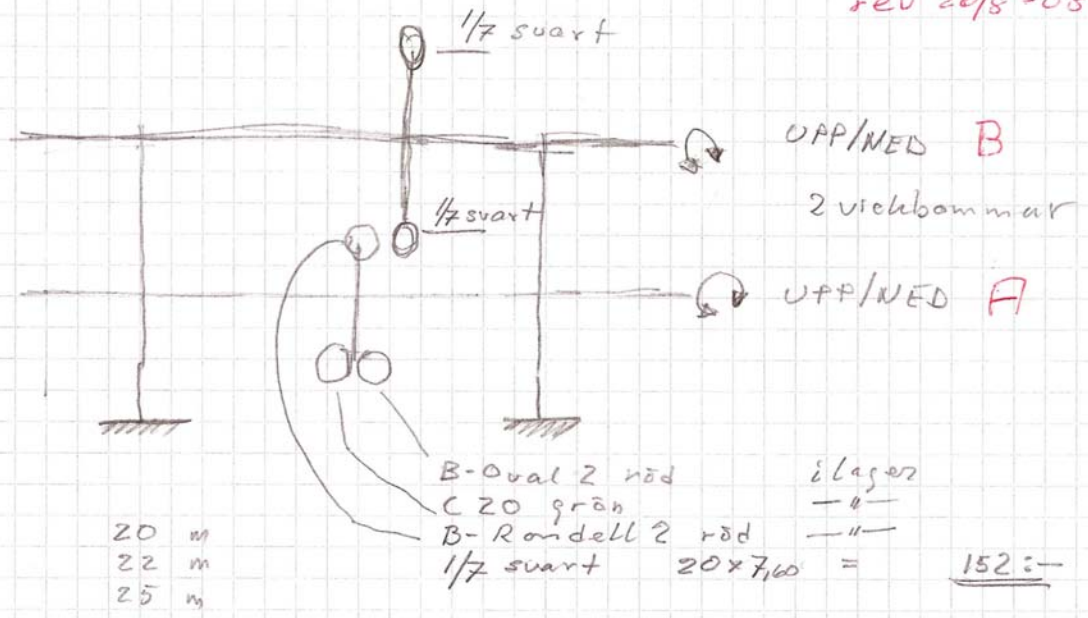 rev 20/8-03
1/7 svart
UPP/NED B
2 vickbommar
1/7 svart
UPP/NED A
B-Oval 2 röd i lager
C 20 grön —"—
B-Rondell 2 röd —"—
1/7 svart 20x7,60 = 152:-
20 m
22 m
25 m